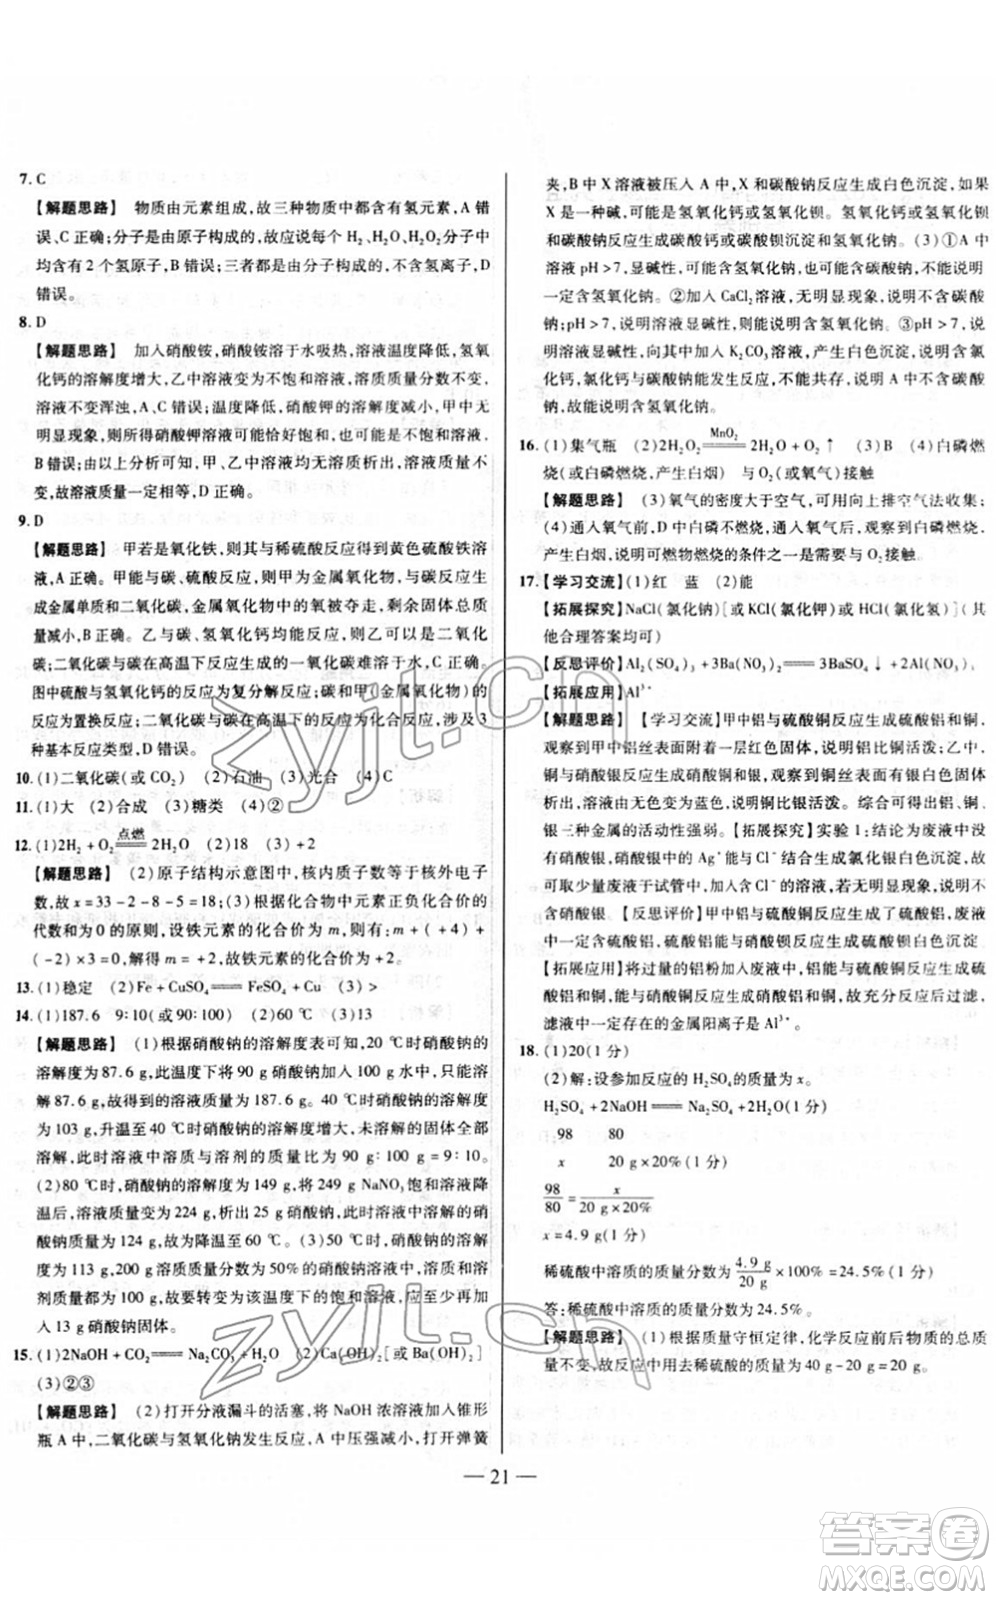 7. C
【解题思路】 物质由元素组成,故三种物质中都含有氢元素,A 错
误、C 正确;分子是由原子构成的,故应说每个 H₂、H₂O、H₂O₂分子中
均含有 2 个氢原子,B 错误;三者都由分子构成的,不含氢分子,D
错误。
8. D
【解题思路】 加入硝酸铵,硝酸铵溶于水吸热,溶液温度降低,氢氧
化钙的溶解度增大,乙中溶液变为不饱和溶液,溶质质量分数不变,
溶液不变浑浊,A、C 错误;温度降低,硝酸钾的溶解度减小,甲中无
明显现象,则所得硝酸钾溶液可能恰好饱和,也可能是不饱和溶液,
B 错误;由以上分析可知,甲、乙中溶液均无溶质析出,溶液质量不
变,故溶液质量一定相等,D 正确。
9. D
【解题思路】 甲若是氧化铁,则其与稀硫酸反应得到黄色硫酸铁溶
液,A 正确。甲能与碳、硫酸反应,则甲为金属氧化物,与碳反应后生
成金属单质和二氧化碳,金属氧化物中的氧被夺走,剩余固体总质
量减小,B 正确。乙与碳、氢氧化钙均能反应,则乙可以是二氧化
碳,二氧化碳与碳在高温下反应生成的一氧化碳难溶于水,C 正确。
图中硫酸与氢氧化钙的反应为复分解反应;碳和甲(金属氧化物)的
反应为置换反应;二氧化碳与碳在高温下反应为化合反应,涉及 3
种基本反应类型,D 错误。
10. (1)二氧化碳(或 CO₂) (2)石油 (3)光合 (4)C
11. (1)大 (2)合成 (3)糖类 (4)②
12. (1)2H₂ + O₂ 点燃 2H₂O (2)18 (3) +2
【解题思路】 (2)原子结构示意图中,核内质子数等于核外电子
数,故 x = 33 - 2 - 8 - 5 = 18;(3)根据化合物中元素正负化合价的
代数和为 0 的原则,设铁元素的化合价为 m,则有:m + ( + 4) +
( - 2) × 3 = 0,解得 m = + 2,故铁元素的化合价为 + 2。
13. (1)稳定 (2)Fe + CuSO₄ ═══ FeSO₄ + Cu (3) >
14. (1)187.6 9∶10(或 90∶100) (2)降温 (3)13
【解题思路】 (1)根据硝酸钠的溶解度表可知,20 ℃时硝酸钠的
溶解度为 87.6 g,此温度下将 90 g 硝酸钠加入 100 g 水中,只能溶
解 87.6 g,故得到的溶液质量为 187.6 g。40 ℃时硝酸钠的溶解度
为 103 g,升温至 40 ℃时硝酸钠的溶解度增大,未溶解的固体全部
溶解,此时溶液中溶质与溶剂的质量比为 90 g∶100 g = 9∶10。
(2)80 ℃时,硝酸钠的溶解度为 149 g,将 249 g NaNO₃ 饱和溶液降
温后,溶液质量变为 224 g,析出 25 g 硝酸钠固体,则溶液中溶解的
硝酸钠质量为 124 g,故为降温至 60 ℃。(3)50 ℃时,硝酸钠的溶
解度为 113 g,200 g 溶质质量分数为 50%的硝酸钠溶液中,溶质和溶
剂质量都为 100 g,故要转变为该温度下的饱和溶液,至少应再加
入 13 g 硝酸钠固体。
15. (1)2NaOH + CO₂ ═══ Na₂CO₃ + H₂O (2)Ca(OH)₂[或 Ba(OH)₂]
(3)②③
【解题思路】 (2)打开分液漏斗的活塞,将 NaOH 浓溶液加入锥形
瓶 A 中,二氧化碳与氢氧化钠发生反应,A 中压强减小,打开弹簧
夹,B 中 X 溶液被压入 A 中,X 和碳酸钠反应生成白色沉淀,如果
X 是一种碱,可能是氢氧化钙或氢氧化钡。氢氧化钙或氢氧化钡
和碳酸钠反应生成碳酸钙或碳酸钡沉淀和氢氧化钠。(3)①A 中
溶液 pH > 7,显碱性,可能含氢氧化钠,也可能含碳酸钠,不能说明
一定含氢氧化钠。②加入 CaCl₂ 溶液,无明显现象,说明不含碳酸
钠;pH > 7,说明溶液显碱性,则能说明含氢氧化钠。③pH > 7,说明
溶液显碱性,向其中加入 K₂CO₃ 溶液,产生白色沉淀,说明含氯
化钙,氯化钙与碳酸钠能发生反应,不能共存,说明 A 中不含碳酸
钠,故能说明含氢氧化钠。
16. (1)集气瓶 (2)2H₂O₂ MnO₂ 2H₂O + O₂↑ (3)B (4)白磷燃
烧(或白磷燃烧,产生白烟) 与 O₂(或氧气)接触
【解题思路】 (3)氧气的密度大于空气,可用向上排空气法收集;
(4)通入氧气前,D 中白磷不燃烧,通入氧气后,观察到白磷燃烧,
产生白烟,说明可燃物燃烧的条件之一是要与 O₂ 接触。
17.【学习交流】(1)红 蓝 (2)能
【拓展探究】NaCl(氯化钠)[或 KCl(氯化钾)或 HCl(氯化氢)](其
他合理答案均可)
【反思评价】Al₂(SO₄)₃ +3Ba(NO₃)₂ ═══ 3BaSO₄↓ +2Al(NO₃)₃
【拓展应用】Al³⁺
【解题思路】【学习交流】甲中铝与硫酸铜反应生成硫酸铝和铜,
观察到甲中铝丝表面着一层红色固体,说明铝比铜活泼;乙中,铜
与硝酸银反应生成硝酸铜和银,观察到铜丝表面有银白色固体
析出,溶液由无色变为蓝色,说明铜比银活泼。综合可得出铝、铜、
银三种金属的活动性强弱。【拓展探究】实验 1:结论为废液中
没有硝酸银,则利用硝酸银中的 Ag⁺能与 Cl⁻结合生成氯化银白色沉淀,故
可取少量废液于试管中,加入含 Cl⁻的溶液,无白色沉淀产生,则不
含硝酸银。【反思评价】甲中铝与硫酸铜反应生成了硫酸铝,废液
中含有硫酸铝,硫酸铝能与硝酸钡反应生成硫酸钡沉淀和硝酸铝。
【拓展应用】将过量的铝粉加入废液中,铝能与硫酸铜反应生成硫
酸铝和铜,能与硝酸铜反应生成硝酸铝和铜,故充分反应后过滤,
滤液中一定存在的金属阳离子是 Al³⁺。
18. (1)20(1 分)
(2)解:设参加反应的 H₂SO₄的质量为 x。
H₂SO₄ +2NaOH ═══ Na₂SO₄ +2H₂O(1 分)
98 80
x 20 g × 20%(1 分)
98/80 = x/(20 g × 20%)
x = 4.9 g(1 分)
稀硫酸中溶质的质量分数为 4.9 g/20 g × 100% = 24.5%(1 分)
答:稀硫酸中溶质的质量分数为 24.5%。
【解题思路】 (1)根据质量守恒定律,化学反应前后物质的总质
量不变,故反应中用去稀硫酸的质量为 40 g - 20 g = 20 g。
— 21 —
zyjl.cn
zyjl.cn
答案圈
MXQE.COM